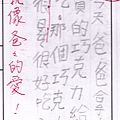 天爸爸
的巧克力給
吃,那個巧克力
很好吃
就像爸爸的愛!